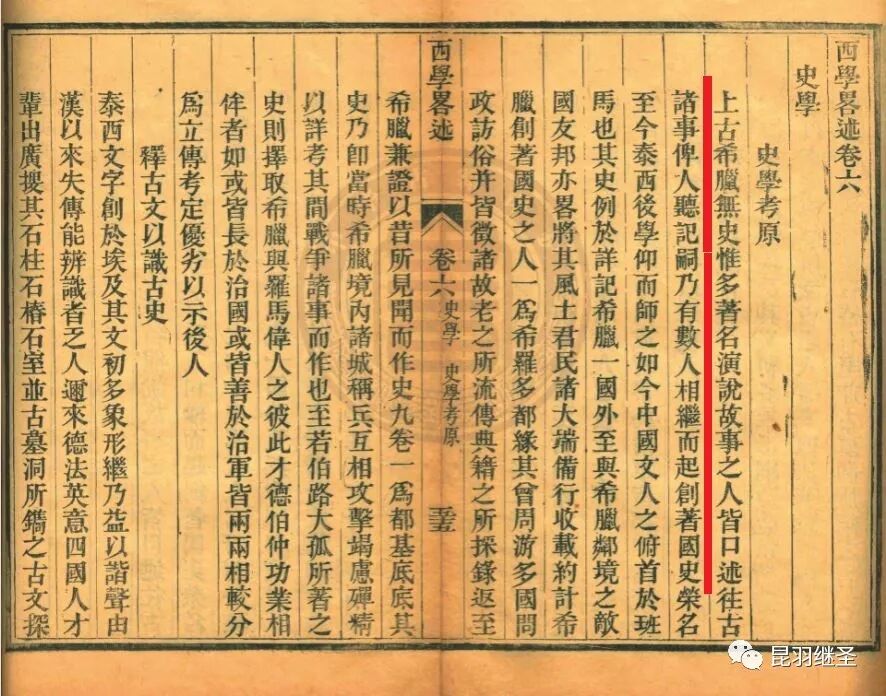 西學畧述卷十六
史學
史學考原
上古希臘無史惟多著名演說故事之人皆口述往古
諸事俾人聽記嗣乃有數人相繼而起創著國史榮名
至今泰西後學仰而師之如今中國文人之俯首於班
馬也其史例於詳記希臘一國外至與希臘鄰境之敵
國友邦亦畧將其風土君民諸大端備行收載約計希
臘創著國史之人一爲希羅多都緣其曾周游多國問
政訪俗并皆徵諸故老之所流傳典籍之所採錄返至
西學畧述
卷十六 史學 史學考原
五十五
希臘兼證以昔所見聞而作史九卷一爲都基底底其
史乃卽當時希臘境內諸城稱兵互相攻擊竭慮殫精
以詳考其間戰爭諸事而作也至若伯路大孤所著之
史則擇取希臘與羅馬偉人之彼此才德伯仲功業相
侔者如或皆長於治國或皆善於治軍皆兩兩相較分
爲立傳考定優劣以示後人
釋古文以識古史
泰西文字創於埃及其文初多象形繼乃益以諧聲由
漢以來失傳能辨識者乏人邇來德法英意四國人才
輩出廣搜其石柱石樁石室並古墓洞所鐫之古文探
昆羽继圣